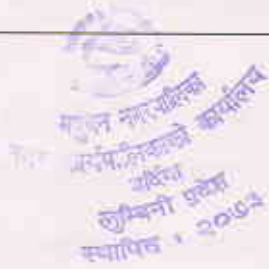 मधुवन नगरपालिका
नगर कार्यपालिकाको कार्यालय
बर्दिया
लुम्बिनी प्रदेश
स्थापित : २०७२